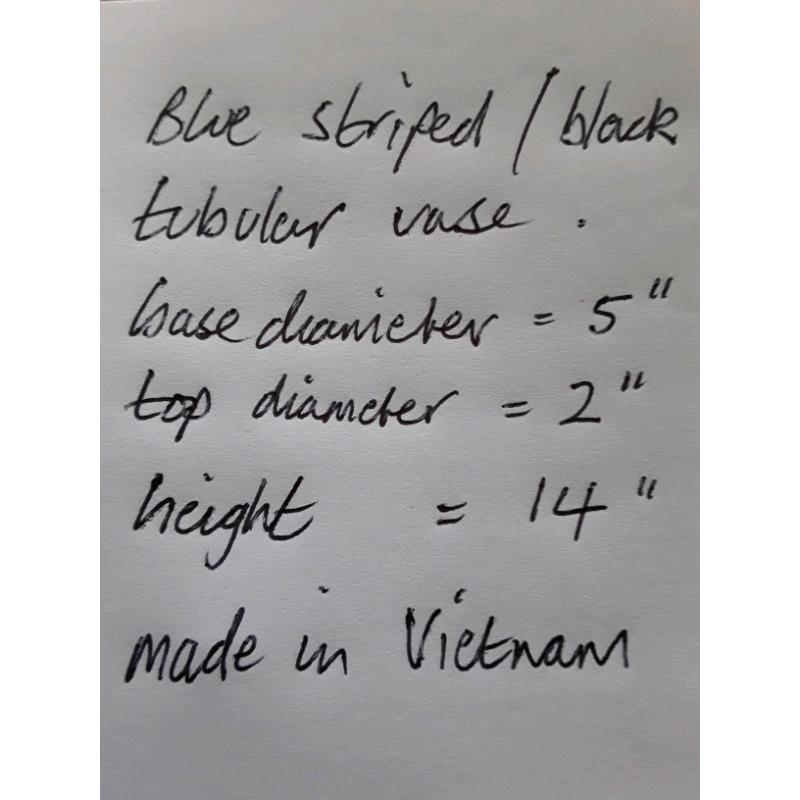 Blue striped / black
tubular vase .
base diameter = 5"
top diameter = 2"
height = 14"
made in Vietnam